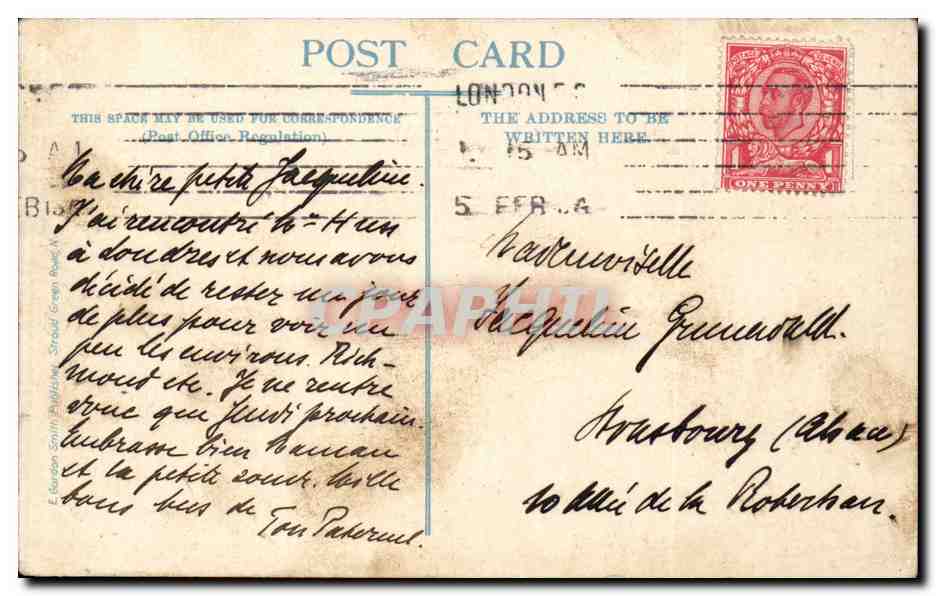 POST CARD
THIS SPACE MAY BE USED FOR CORRESPONDENCE
(Post Office Regulation)
THE ADDRESS TO BE
WRITTEN HERE.
LONDON
15 AM
5 FEB
1 1
ONE PENNY
Ma chère petite Jacqueline.
J'ai rencontré Mr
à Londres et nous avons
décidé de rester un jour
de plus pour voir un
peu les environs. Rich-
mond etc. Je ne rentre
donc que Jeudi prochain.
Embrasse bien Maman
et la petite sœur. Mille
bons bees de
Ton Paternel.
Mademoiselle
Jacqueline Grunewald.
Strasbourg (Alsace)
10 Allée de la Robertsau.
E. Gordon Smith Publisher, Stroud Green Road, N.
CPAPHIL